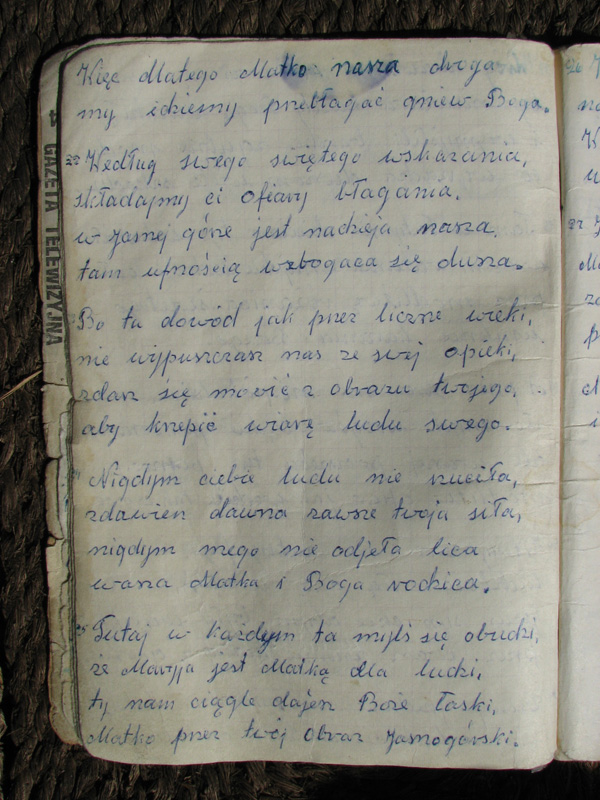 Więc dlatego Matko nasza droga
my idziemy przebłagać gniew Boga.
22 Według swego świętego wskazania,
składajmy ci ofiary błagania.
w Jasnej górze jest nadzieja nasza,
tam ufnością wzbogaca się dusza.
Bo tu dowód jak przez liczne wieki,
nie wypuszczasz nas ze swej opieki,
zdasz się mówić z obrazu twojego,
aby krzepić wiarę ludu swego.
Nigdym ciebie ludu nie rzuciła,
zdawien dawna zawsze twoja siła,
nigdym mego nie odjęła lica
wasza Matka i Boga rodzica.
Tutaj w każdym ta myśl się obudzi,
że Maryja jest Matką dla ludzi,
ty nam ciągle dajesz Boże łaski,
Matko przez twój obraz Jasnogórski.
GAZETA TELEWIZYJNA